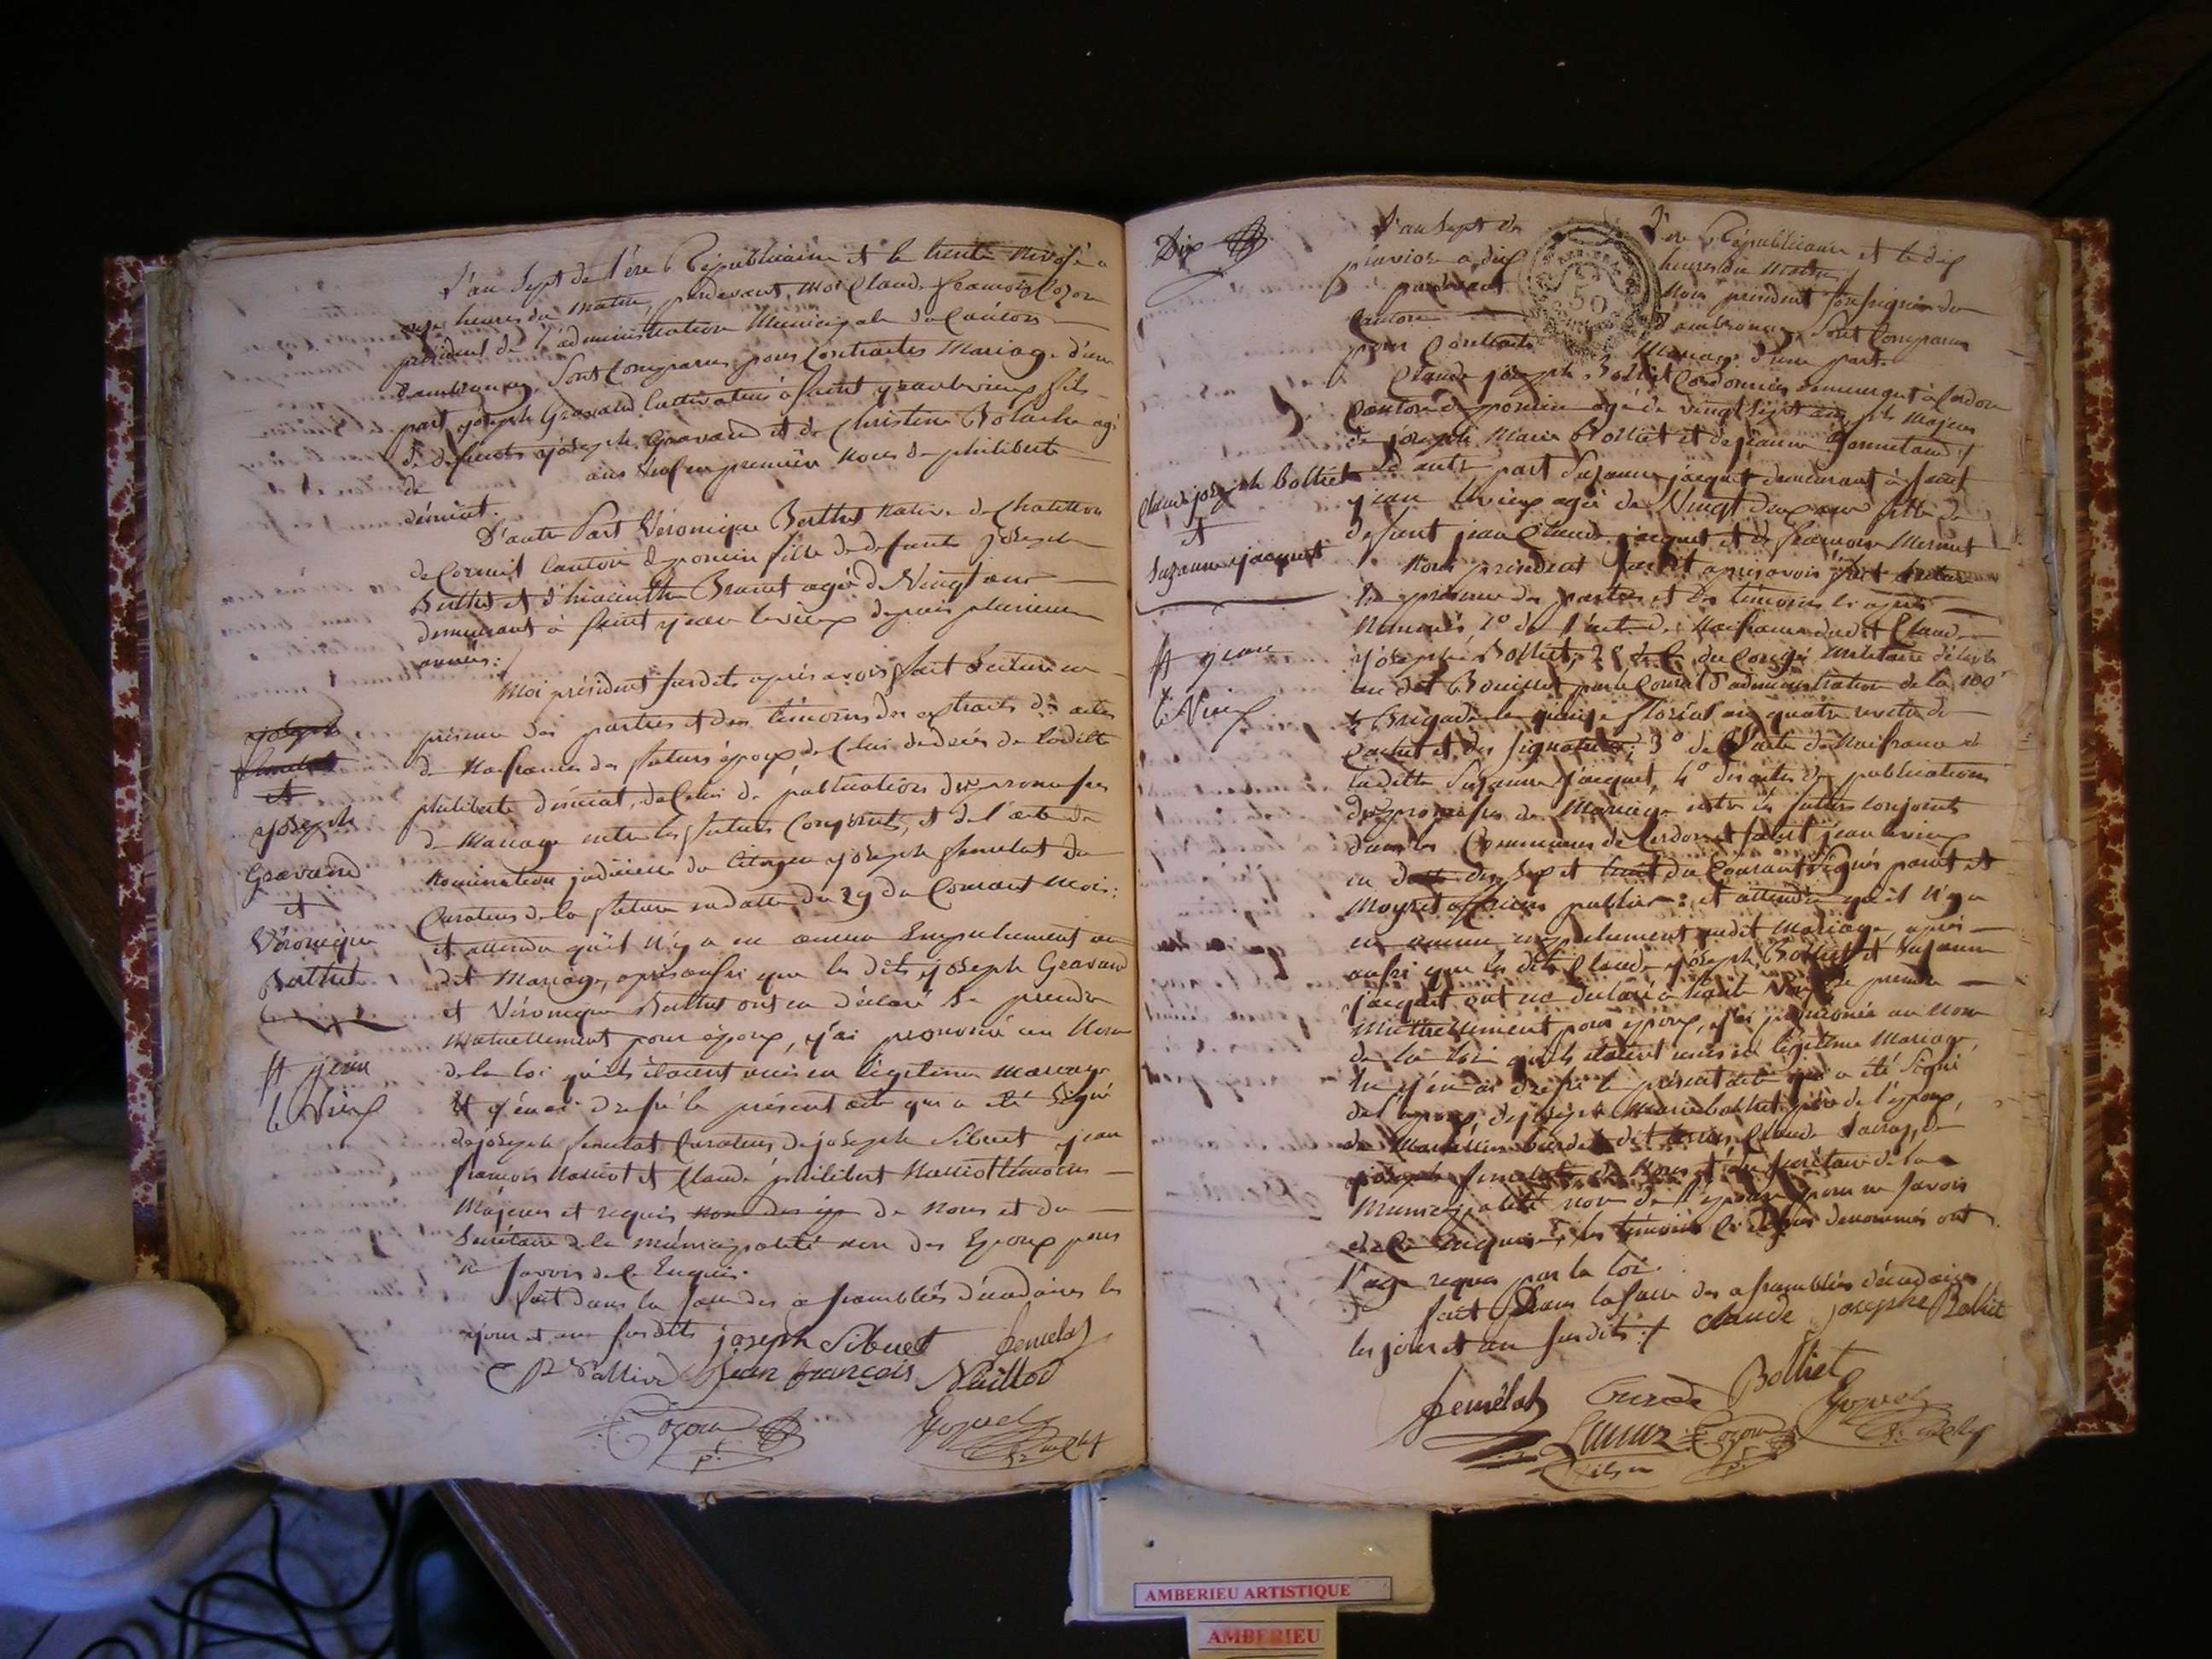 L'an sept de l'ère Républicaine et le trente Nivose à
onze heures du matin, pardevant Moi Claude françois Cozon
président de l'administration Municipale du Canton
d'ambronay, Sont Comparus pour Contracter Mariage d'une
part joseph Gravand Cultivateur à Saint jean le vieux fils
de defunts joseph Gravand et de Christine agé
de ans veuf en premiere Noces de philiberte
démiat.
D'autre Part Véronique Berthet Native de Chatillon
de Corneil Canton de poncin fille de defunts joseph
Berthet et d'hiacinthe agée de Vingt ans
demeurant à Saint jean le vieux depuis plusieurs
années:
Moi président Susdit après avoir fait Lecture en
présence des parties et des témoins des extraits des actes
de Naissance des futurs époux de Celui de décès de ladite
philiberte démiat, de Celui de publication des promesses
de Mariage entre les futurs Conjoints, et de l'acte de
Nomination judiciaire du Citoyen joseph femelat du
Curateur de la future en datte du 29 du Courant mois:
et attendu qu'il n'y a eu aucun Empechement au
dit Mariage, après aussi que les dits joseph Gravand
et Véronique Berthet ont eu déclaré Se prendre
mutuellement pour époux, j'ai prononcé au Nom
de la loi qu'ils étaient unis en légitime Mariage
Et j'en ai dressé le présent acte qui a été Signé
de joseph femelat Curateur, de joseph Sibuet jean
françois Naillot et Claude philibert témoins
Majeurs et requis de Nous et du
Secrétaire de la municipalité non des Epoux pour
ne Savoir de Ce Enquis.
fait dans la Salle des assemblées décadaires les
jour et an susdits joseph Sibuet femelat
jean françois Naillod
Cozon
pt.
joseph
femelat
et
joseph
Gravand
et
Véronique
Berthet
St jean
le Vieux
Dix
L'an Sept de l'ère Républicaine et le dix
pluviose à dix heures du Matin
pardevant Nous président Soussigné du
Canton d'ambronay, Sont Comparus
pour Contracter Mariage d'une part.
Claude joseph Bolliet Cordonnier demeurant à Cerdon
Canton de poncin agé de vingt Sept ans fils Majeur
de joseph Marie Bolliet et de jeanne
D'autre part Suzanne jacquet demeurant à Saint
jean le vieux agée de Vingt deux ans fille de
defunt jean Claude jacquet et de françoise
Nous président Susdit après avoir fait Lecture
en présence des parties et des témoins ci après
Nommés, 1° de l'acte de Naissance dudit Claude
joseph Bolliet, 2° de Ce du Congé Militaire délivré
au dit Bolliet par le Conseil d'administration de la 100e
1/2 Brigade le quinze floréal an quatre revetu du
Cachet et des Signatures; 3° de l'acte de Naissance de
ladite Suzanne jacquet, 4° des actes de publications
des promesses de Mariage entre les futurs Conjoints
dans les Communes de Cerdon et Saint jean le vieux
en datte des Sept et huit du Courant Signés et
officiers publics: et attendu qu'il n'y a
eu aucun empechement audit Mariage, après
aussi que les dits Claude joseph Bolliet et Suzanne
jacquet ont eu déclaré à haute Voix Se prendre
mutuellement pour époux, j'ai prononcé au Nom
de la loi qu'ils étaient unis en légitime Mariage,
j'en ai dressé le présent acte qui a été Signé
de l'époux, de joseph Marie Bolliet père de l'époux,
de dit Claude de
joseph femelat, de Nous et du Secrétaire de la
Municipalité non de l'épouse pour ne Savoir
de Ce Enquise, les témoins Ci dessus dénommés ont
l'age requis par la loi.
fait Dans la Salle des assemblées décadaires
les jour et an Susdits. Claude josephe Bolliet
femélat Bolliet
Cozon
pt.
Claude joseph Bolliet
et
Suzanne jacquet
St jean
le Vieux
50
AMBERIEU ARTISTIQUE
AMBERIEU